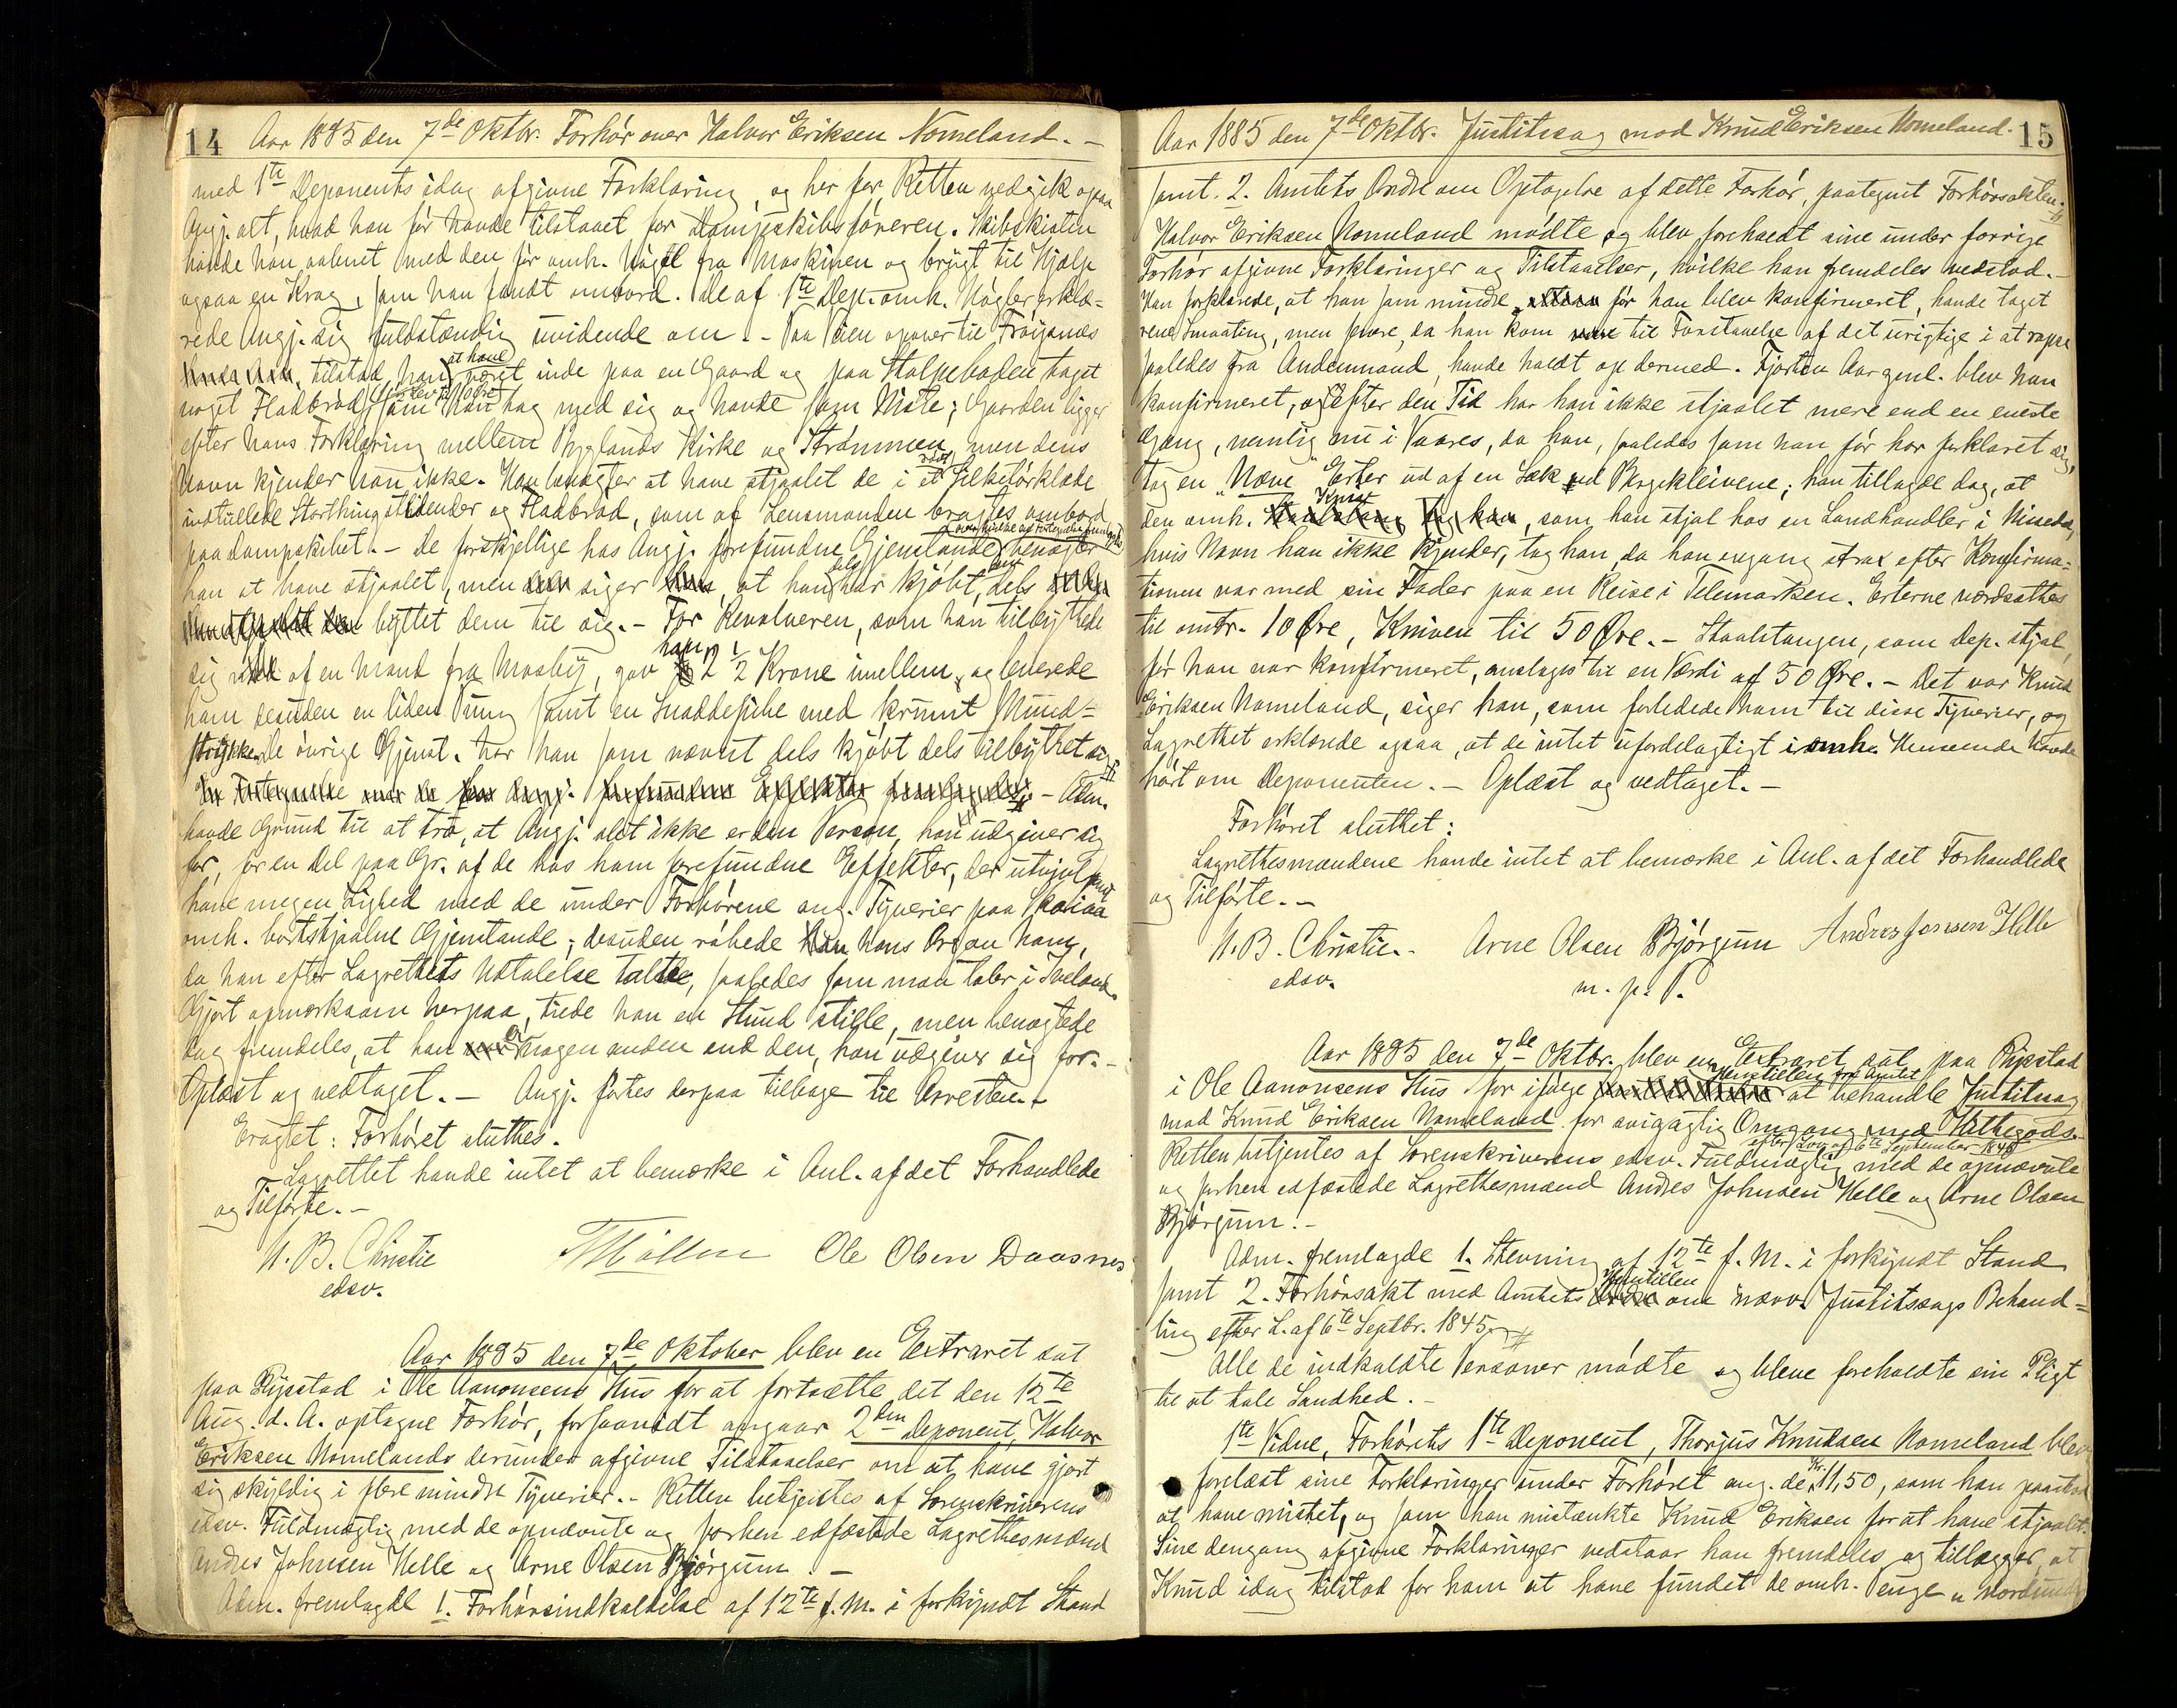 14 Aar 1885 den 7de Oktbr. Forhør over Halvor Eriksen Nomeland. –
med 1ste Deponents idag afgivne Forklaring, og her for Retten vedgik ogsaa
Angj. alt, hvad han før havde tilstaaet for Dampskibsføreren. Skibskisten
havde han aabnet med den før omh. Nøgel fra Maskinen og brugt til Hjælp
ogsaa en Krog, som han fandt ombord. De af 1ste Dep. omh. Nøgler erklæ-
rede Angj. sig fuldstændig uvidende om. – Paa Veien opover til Frøisnæs
tilstod han at have været inde paa en Gaard og paa Stolpeboden taget
noget Fladbrød, som han tog med sig og havde som Niste; Gaarden ligger
efter hans Forklaring mellem Byglands Kirke og Strømmen, men dens
Navn kjender han ikke. Han benægter at have stjaalet de i et rødt Silketørklæde
indtullede Storthingstidender og Fladbrød, som af Lensmanden bragtes ombord
paa dampskibet. – De forskjellige hos Angj. forefundne Gjenstande, benægter
han at have stjaalet, men siger, at han dels har kjøbt, dels
byttet dem til sig. – For Revolveren, som han tilbyttede
sig af en Mand fra Mosby, gav han 2 1/2 Krone imellem, og leverede
ham desuden en liden Pung samt en Snaddepibe med krumt Mund-
stykke. De øvrige Gjenst. har han som nævnt dels kjøbt dels tilbyttet sig
– Adm.
havde Grund til at tro, at Angj. slet ikke er den Person, han udgiver sig
for, for en Del paa Gr. af de hos ham forefundne Effekter, der utvivlsomt
have megen Lighed med de under Forhørene ang. Tyverier paa
omh. bortstjaalne Gjenstande; desuden røbede hans Org an ham,
da han efter Lagrettets Udtalelse talte, saaledes som man taler i Iveland.
Gjort opmærksom herpaa, tiede han en Stund stille, men benægtede
dog fremdeles, at han er nogen anden end den, han udgiver sig for. –
Oplæst og vedtaget. – Angj. førtes derpaa tilbage til Arresten. –
Eragtet: Forhøret sluttes.
Lagrettet havde intet at bemærke i Anl. af det Forhandlede
og Tilførte. –
N. B. Christie Møllen Ole Olsen Daasnes
edsv.
Aar 1885 den 7de Oktober blev en Extraret sat
paa Rysstad i Ole Aanonsens Hus for at fortsætte det den 12te
Aug. d. A. optagne Forhør, forsaavidt angaar 2den Deponent, Halvor
Eriksen Nomelands derunder afgivne Tilstaaelser om at have gjort
sig skyldig i flere mindre Tyverier. – Retten betjentes af Sorenskriverens
edsv. Fuldmægtig med de opnævnte og forhen edfæstede Lagrettesmænd
Andres Johnsen Helle og Arne Olsen Bjørgum. –
Adm. fremlagde 1. Forhørsindkaldelse af 12te f. M. i forkyndt Stand
Aar 1885 den 7de Oktbr. Justitssag mod Knud Eriksen Nomeland. 15
samt. 2. Amtets Ordre om Optagelse af dette Forhør, paategnet Forhørsakten.
Halvor Eriksen Nomeland mødte og blev foreholdt sine under forrige
Forhør afgivne Forklaringer og Tilstaaelser, hvilke han fremdeles vedstod. –
Han forklarede, at han som mindre, før han blev konfirmeret, havde taget
rene Smaating, men senere, da han kom til Forstaaelse af det urigtige i at rapse
saaledes fra Andenmand, havde holdt op dermed. Fjorten Aar gml. blev han
konfirmeret, og efter den Tid har han ikke stjaalet mere end en eneste
Gang, nemlig nu i Vaares, da han, saaledes som han før har forklaret sig,
tog en "Næve" Erter ud af en Sæk ved Bygekleivene; han tillagde dog, at
den omh. Kniv, som han stjal hos en Landhandler i Nissedal,
hvis Navn han ikke kjender, tog han, da han engang strax efter Konfirma-
tionen var med sin Fader paa en Reise i Telemarken. Erterne værdsattes
til omtr. 10 Øre, Kniven til 50 Øre. – Staalstangen, som Dep. stjal,
før han var konfirmeret, anslages til en Værdi af 50 Øre. – Det var Knud
Eriksen Nomeland, siger han, som forledede ham til disse Tyverier, og
Lagrettet erklærede ogsaa, at de intet ufordelagtigt i omh. Henseende havde
hørt om Deponenten. – Oplæst og vedtaget. –
Forhøret sluttet:
Lagrettesmændene havde intet at bemærke i Anl. af det Forhandlede
og Tilførte. –
N. B. Christie. – Arne Olsen Bjørgum Andres Jonsen Helle
edsv. m. p. P.
Aar 1885 den 7de Oktbr. blev en Extraret sat paa Rysstad
i Ole Aanonsens Hus for ifølge Henstillen fra Amtet at behandle Justitssag
mod Knud Eriksen Nomeland for svigagtig Omgang med Hittegods. –
Retten betjentes af Sorenskriverens edsv. Fuldmægtig med de efter Lov af 6te September 1845 opnævnte
og forhen edfæstede Lagrettesmænd Andres Johnsen Helle og Arne Olsen
Bjørgum. –
Adm. fremlagde 1. Stevning af 12te f. M. i forkyndt Stand
samt 2. Forhørsakt med Amtets Henstillen om nævn. Justitssags Behand-
ling efter L. af 6te Septbr. 1845.
Alle de indkaldte Personer mødte og bleve foreholdte sin Pligt
til at tale Sandhed. –
1ste Vidne, Forhørets 1ste Deponent, Thorjus Knudsen Nomeland blev
forelæst sine Forklaringer under Forhøret ang. de Kr. 11,50, som han paastod
at have mistet, og som han mistænkte Knud Eriksen for at have stjaalet.
Sine dengang afgivne Forklaringer vedstaar han fremdeles og tillægger, at
Knud idag tilstod for ham at have fundet de omh. Penge